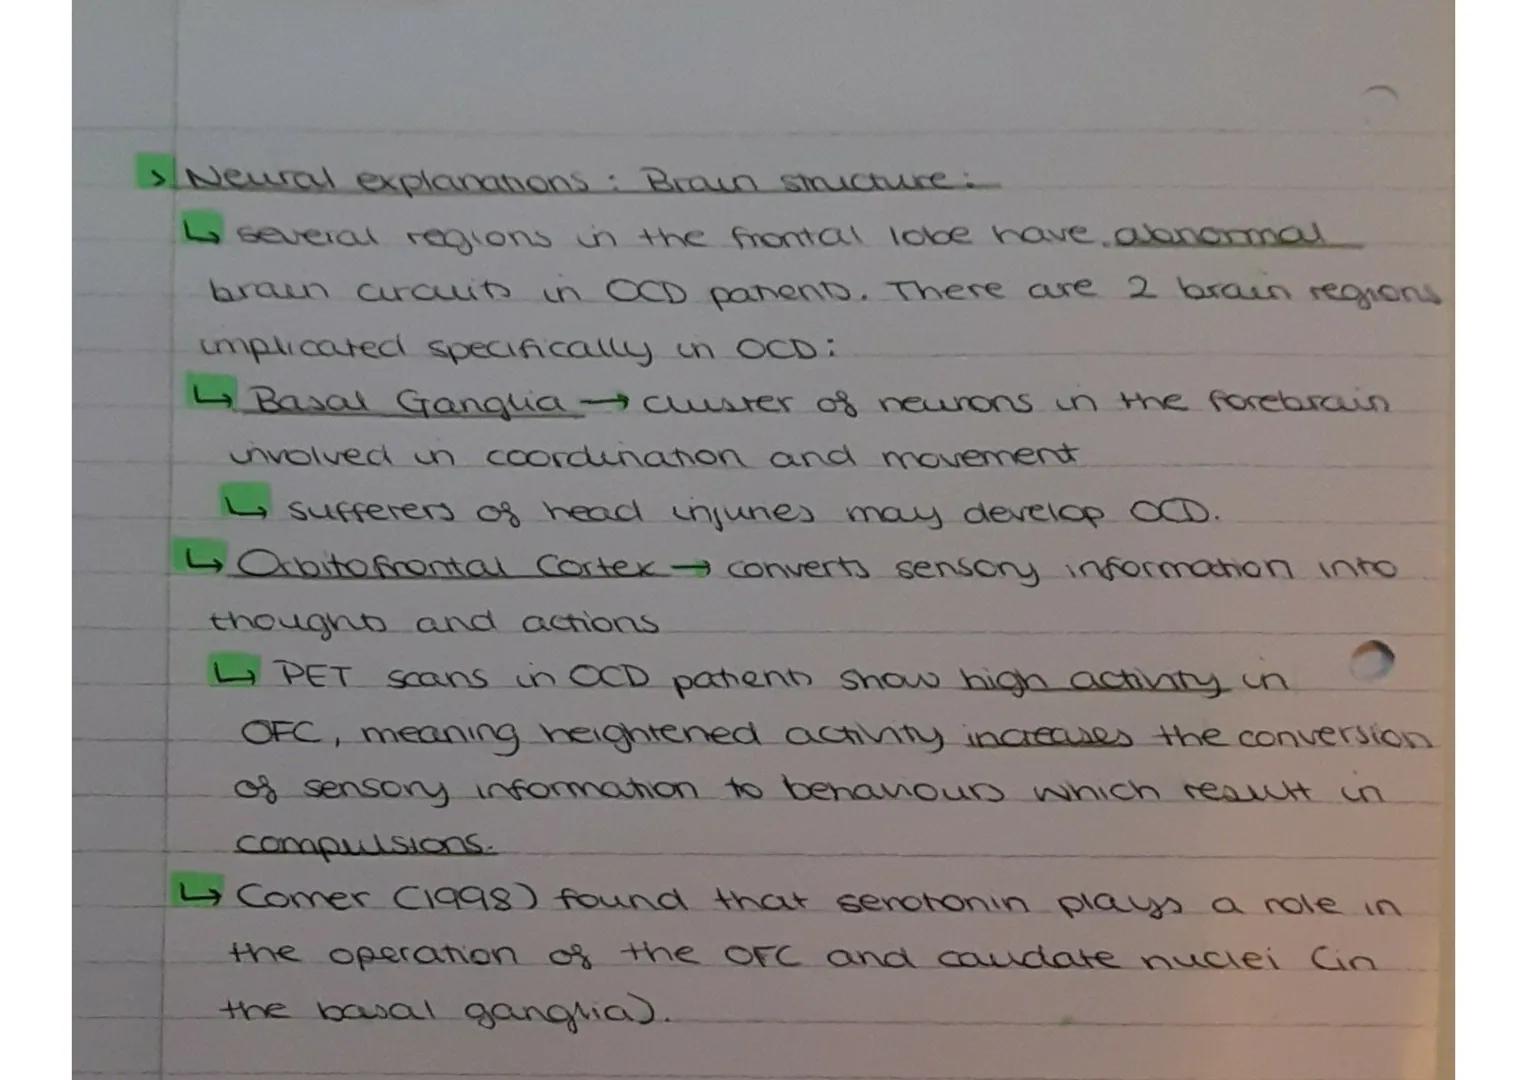 > Neural explanations: Brain structure:
↳ several regions in the frontal lobe have abnormal
brain circuits in OCD patients. There are 2 brain regions
implicated specifically in OCD:
↳ Basal Ganglia → cluster of neurons in the forebrain
involved in coordination and movement
↳ sufferers of head injuries may develop OCD.
↳ Orbitofrontal Cortex → converts sensory information into
thoughts and actions
↳ PET scans in OCD patients show high activity in
OFC, meaning heightened activity increases the conversion
of sensory information to behaviours which result in
compulsions.
↳ Comer (1998) found that serotonin plays a role in
the operation of the OFC and caudate nuclei (in
the basal ganglia).